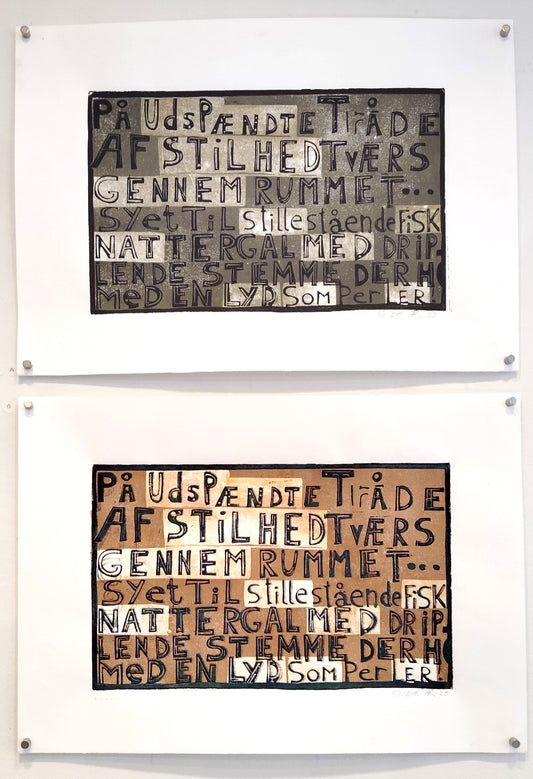 PÅ UdSPÆNDTE TRÅDE
AF STiLHED TVÆRS
GENNEM RUMMET...
SYET TiL stillestående FiSK
NATTERGAL MED DRIP-
LENDE STEMME DER HO
MED EN LYD SOM PerLER.
PÅ UdSPÆNDTE TRÅDE
AF STiLHED TVÆRS
GENNEM RUMMET...
SYET TiL stillestående FiSK
NATTERGAL MED DRIP-
LENDE STEMME DER HO
MED EN LYD SOM PerLER.